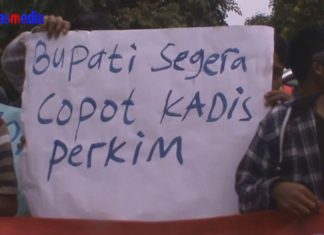 BUPATI SEGERA
COPOT KADIS
PERKIM